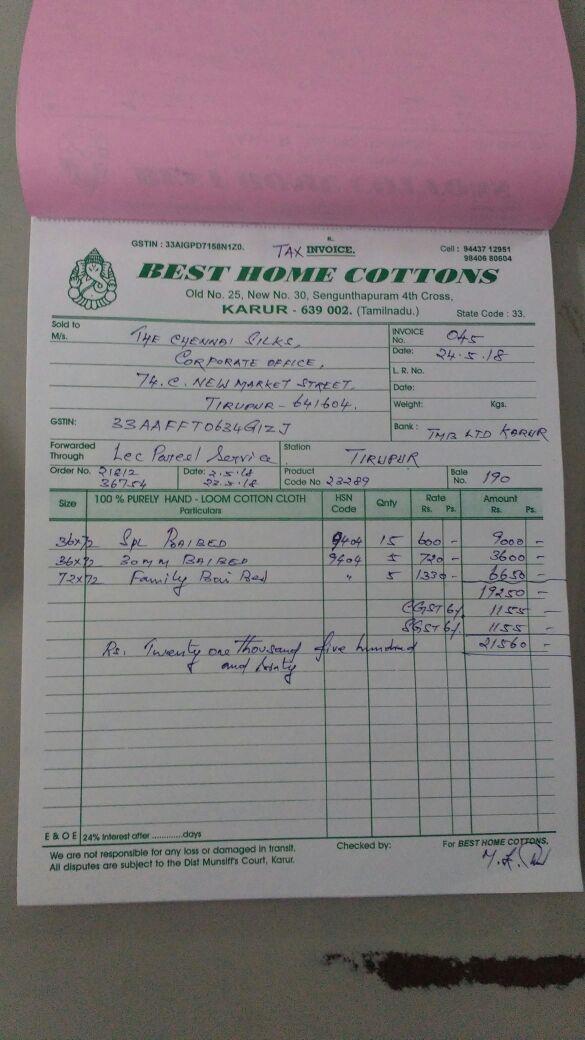 GSTIN : 33AIGPD7158N1Z0.
TAX INVOICE.
Cell : 94437 12951
98406 80604
BEST HOME COTTONS
Old No. 25, New No. 30, Sengunthapuram 4th Cross,
KARUR - 639 002. (Tamilnadu.)
State Code : 33.
Sold to
M/s. THE CHENNAI SILKS,
CORPORATE OFFICE,
74.C. NEW MARKET STREET,
TIRUPUR - 641604.
GSTIN: 33AAFFT0634G1ZJ
INVOICE No. 045
Date: 24.5.18
L. R. No.
Date:
Weight: Kgs.
Bank : TMB LTD KARUR
Forwarded Through Lec Parcel Service
Station TIRUPUR
Order No. 21812
36754
Date: 2.5.18
22.5.18
Product Code No 23289
Bale No. 190
Size 100 % PURELY HAND - LOOM COTTON CLOTH Particulars HSN Code Qnty Rate Rs. Ps. Amount Rs. Ps.
36x72 Spl BAIBED 9404 15 600 - 9000 -
36x72 30MM BAIBED 9404 5 720 - 3600 -
72x72 Family Bai Bed " 5 1330 - 6650 -
19250 -
CGST 6% 1155 -
SGST 6% 1155 -
21560 -
Rs. Twenty one thousand five hundred
and sixty
E & O E 24% Interest after ............days
We are not responsible for any loss or damaged in transit.
All disputes are subject to the Dist Munsiff's Court, Karur.
Checked by:
For BEST HOME COTTONS.